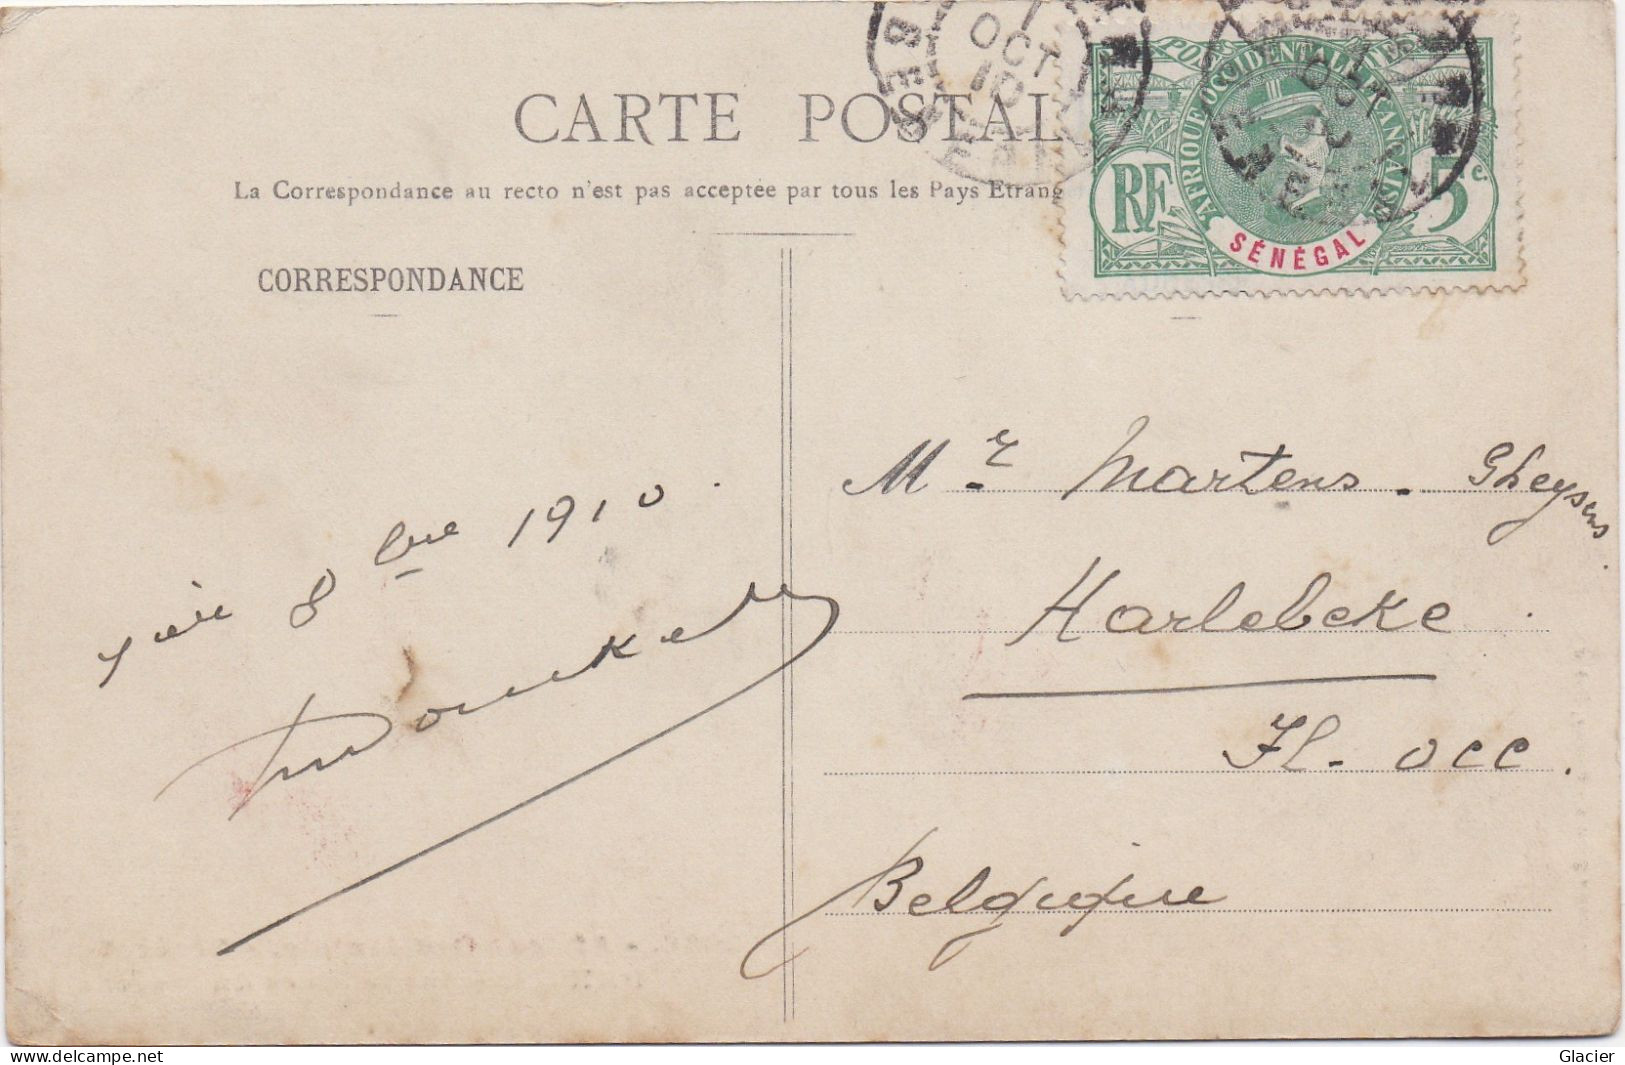 1
OCT
10
CARTE POSTAL
POSTES
AFRIQUE OCCIDENTALE FRANÇAISE
RF
5c.
SÉNÉGAL
La Correspondance au recto n'est pas acceptée par tous les Pays Etrang
CORRESPONDANCE
Mr Martens - Gheysens
8 bre 1910.
Harlebeke.
Fl. occ.
Belgique
Glacier
www.delcampe.net